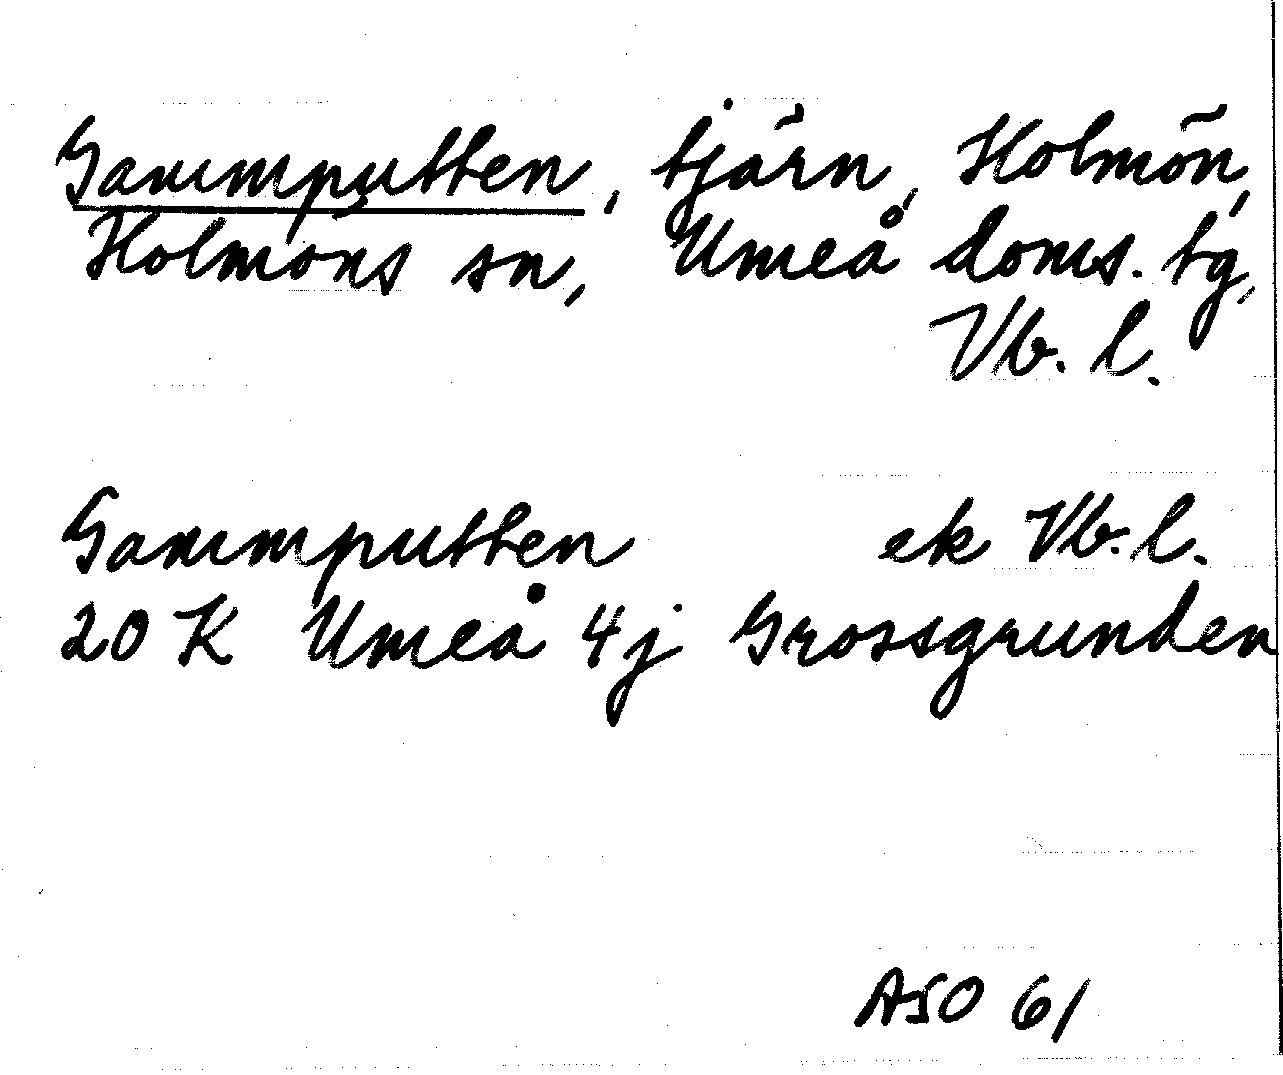 Gammputten, tjärn, Holmön,
Holmöns sn, Umeå doms. tg,
Vb. l.
Gammputten ek Vb. l.
20 K Umeå 4j Grossgrunden
ASO 61